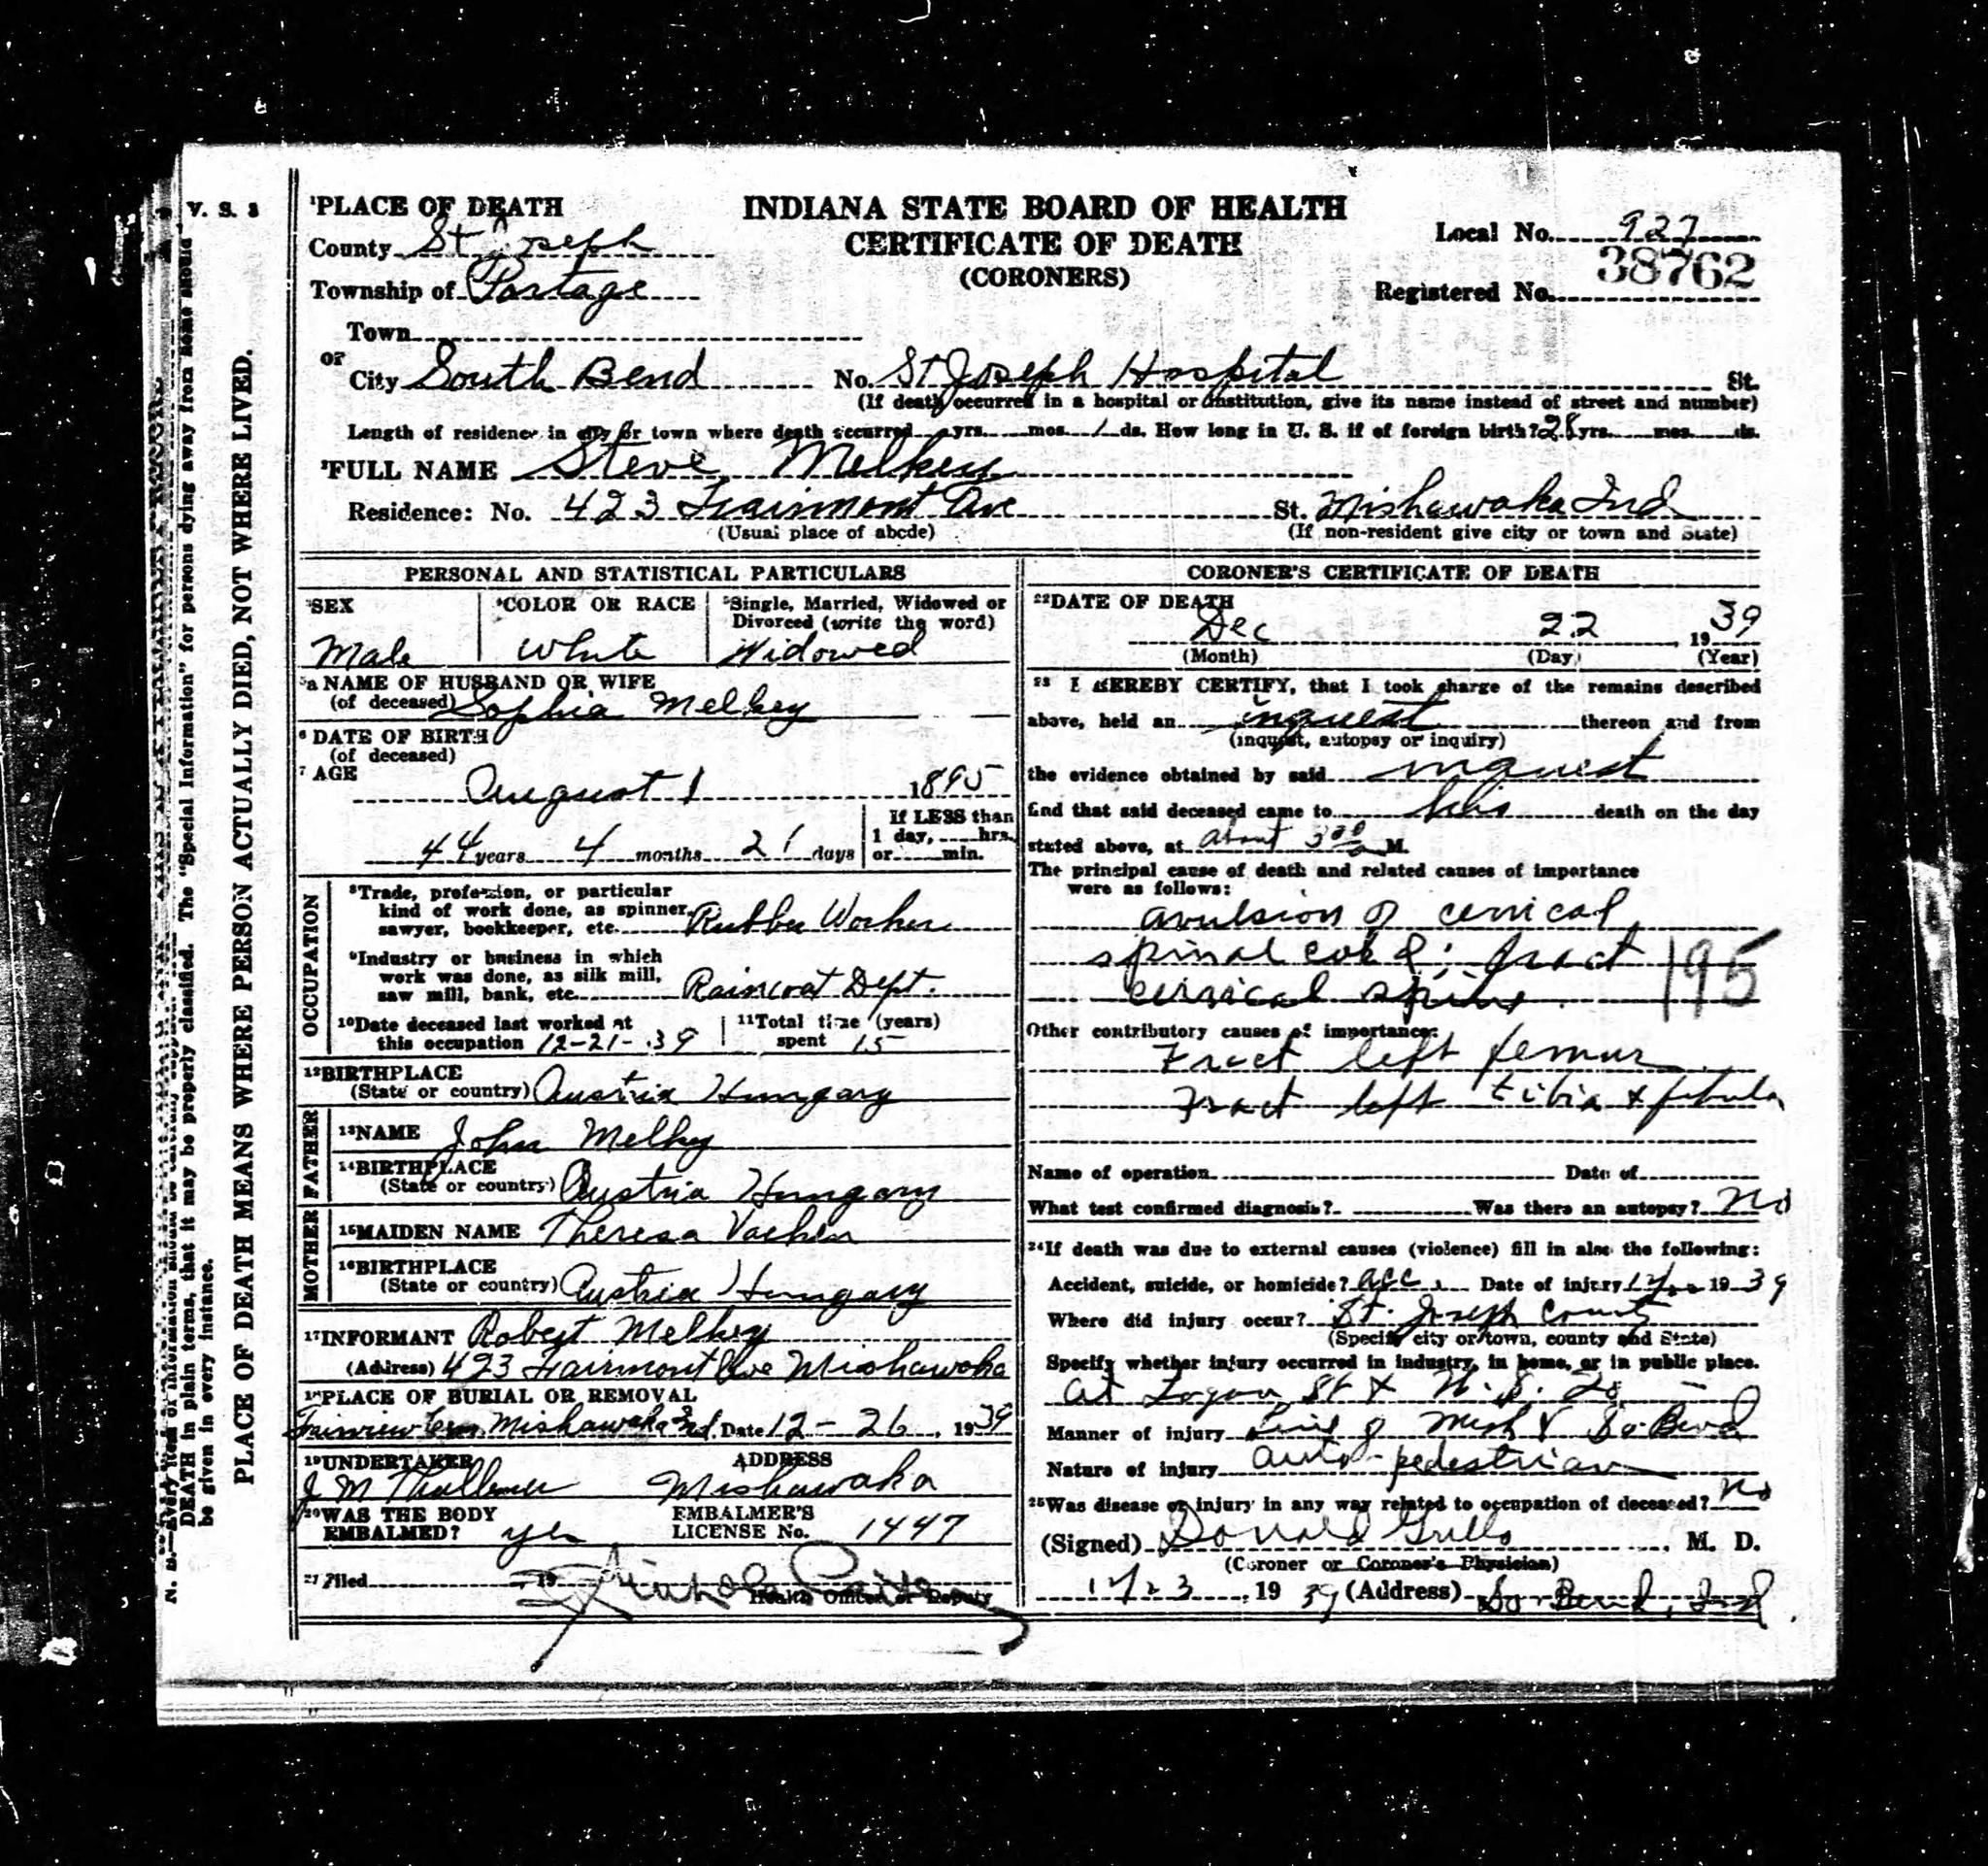 V. S. 3
INDIANA STATE BOARD OF HEALTH
CERTIFICATE OF DEATH
(CORONERS)
Local No. 927
Registered No. 38762
¹PLACE OF DEATH
County St Joseph
Township of Portage
Town
or
City South Bend No. St Joseph Hospital St.
(If death occurred in a hospital or institution, give its name instead of street and number)
Length of residence in city or town where death occurred yrs. mos. 1 ds. How long in U. S. if of foreign birth? 28 yrs. mos. ds.
²FULL NAME Steve Melkey
Residence: No. 423 Fairmont Ave St. Mishawaka Ind
(Usual place of abode) (If non-resident give city or town and State)
PERSONAL AND STATISTICAL PARTICULARS
³SEX
Male
⁴COLOR OR RACE
White
⁵Single, Married, Widowed or
Divorced (write the word)
Widowed
⁵a NAME OF HUSBAND OR WIFE
(of deceased) Sophia Melkey
⁶ DATE OF BIRTH
(of deceased)
⁷ AGE
August 1 1895
44 years 4 months 21 days
If LESS than
1 day, hrs.
or min.
OCCUPATION
⁸Trade, profession, or particular
kind of work done, as spinner,
sawyer, bookkeeper, etc. Rubber Worker
⁹Industry or business in which
work was done, as silk mill,
saw mill, bank, etc. Raincoat Dept.
¹⁰Date deceased last worked at
this occupation 12-21-39
¹¹Total time (years)
spent 15
¹²BIRTHPLACE
(State or country) Austria Hungary
FATHER
¹³NAME John Melky
¹⁴BIRTHPLACE
(State or country) Austria Hungary
MOTHER
¹⁵MAIDEN NAME Theresa
¹⁶BIRTHPLACE
(State or country) Austria Hungary
¹⁷INFORMANT Robert Melkey
(Address) 423 Fairmont Ave Mishawaka
¹⁸PLACE OF BURIAL OR REMOVAL
Fairview Cem Mishawaka Ind. Date 12-26, 1939
¹⁹UNDERTAKER ADDRESS
J M Mishawaka
²⁰WAS THE BODY
EMBALMED? yes
EMBALMER'S
LICENSE No. 1447
²¹Filed , 19
Health Officer or Deputy
CORONER'S CERTIFICATE OF DEATH
²²DATE OF DEATH
Dec 22, 1939
(Month) (Day) (Year)
²³ I HEREBY CERTIFY, that I took charge of the remains described
above, held an inquest thereon and from
(inquest, autopsy or inquiry)
the evidence obtained by said inquest
find that said deceased came to his death on the day
stated above, at about 3 M.
The principal cause of death and related causes of importance
were as follows:
avulsion of cervical
spinal cord; fract
cervical spine.
195
Other contributory causes of importance:
Fract left femur
Fract left tibia & fibula
Name of operation Date of
What test confirmed diagnosis? Was there an autopsy? No
²⁴If death was due to external causes (violence) fill in also the following:
Accident, suicide, or homicide? acc. Date of injury 1939
Where did injury occur? St. Joseph County
(Specify city or town, county and State)
Specify whether injury occurred in industry, in home, or in public place.
at Logan St & U. S. 20
Manner of injury Line of Mish & So Bend
Nature of injury auto-pedestrian
²⁵Was disease or injury in any way related to occupation of deceased? No
(Signed) Donald Grillo, M. D.
(Coroner or Coroner's Physician)
12/23, 1939 (Address) So Bend, Ind.
DEATH in plain terms, that it may be properly classified. The "Special Information" for persons dying away from home should
be given in every instance.
PLACE OF DEATH MEANS WHERE PERSON ACTUALLY DIED, NOT WHERE LIVED.